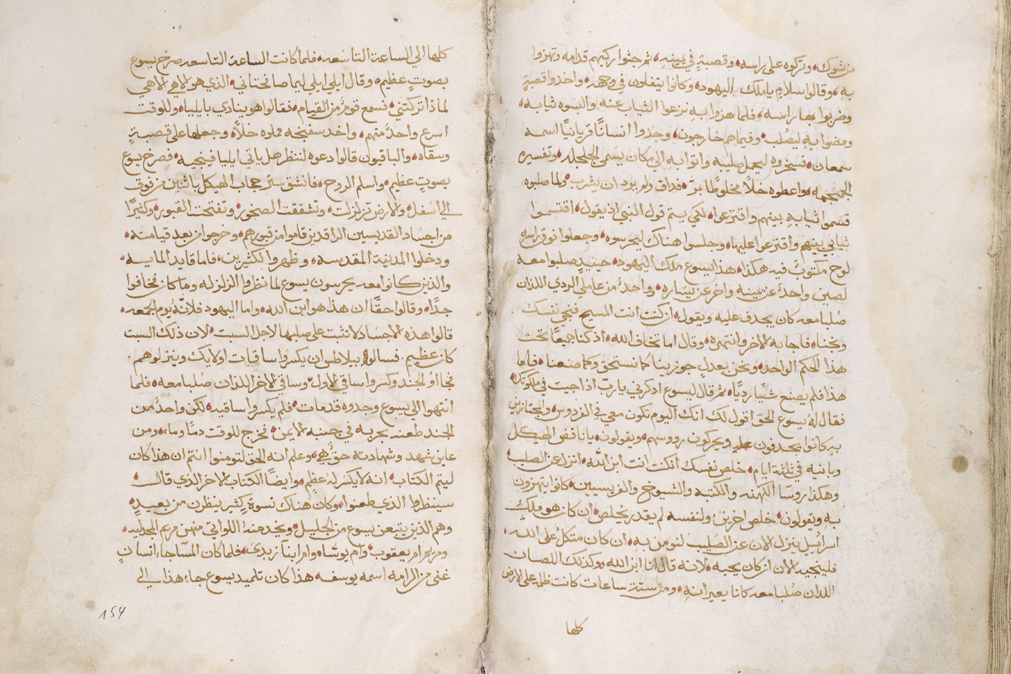 من شوك وتركوه على راسه وقصبة في يمينه ثم جثوا ركبهم قدامه وتهزوا
به وقالوا سلام يا ملك اليهود وكانوا يتفلون في وجهه واخدوا قصبة
وضربوا بها راسه فلما هزوا به نزعوا الثياب عنه والبسوه ثيابه
ومضوا به ليصلب وفيما هم خارجون وجدوا انسانًا قريانيًا اسمه
سمعان فسخروه ليحمل صليبه واتوا به الى مكان يسمى الجلجلد وتفسيره
الجمجمه واعطوه خلًا مخلوطًا بمر فذاق ولم يرد ان يشرب ولما صلبوه
قسموا ثيابه بينهم واقترعوا لكي يتم قول النبي اذ يقول اقتسموا
ثيابي بينهم واقترعوا عليها وجلسوا هناك ليحرسوه وجعلوا فوق راسه
لوح مكتوب فيه هكذا هذا يسوع ملك اليهود حينيدٍ صلبوا معه
لصين واحد عن يمينه واخر عن يساره وواحد من عاملي الردي اللذان
صلبا معه كان يجدف عليه ويقول ان كنت انت المسيح فنجي نفسك
ونجنا فاجابه الاخر وانتهره وقال اما تخاف الله اذ كنا جميعًا تحت
هذا الحكم الواحد ونحن بعدل جوزينا كما نستحق وكما صنعنا فاما
هذا فلم يصنع شيًا رديًا ثم قال ليسوع ادكرني يا رب اذا جيت في ملكوتك
فقال له يسوع الحق اقول لك انك اليوم تكون معي في الفردوس والمجتازين
به كانوا يجدفون عليه ويحركون رووسهم ويقولون يا ناقض الهيكل
وبانيه في ثلثة ايام خلص نفسك ان كنت انت ابن الله انزل عن الصليب
وهكذا روسا الكهنه والكتبه والشيوخ والفريسيين كانوا يتهزون
به ويقولون خلص اخرين ولنفسه لم يقدر يخلص ان كان هو ملك
اسرائيل ينزل الان عن الصليب لنومن به ان كان متكل على الله
فلينجيه الان ان كان يحبه لانه قال انا ابن الله وكذلك اللصان
اللذان صلبا معه كانا يعيرانه ومن ستة ساعات كانت ظلمه على الارض
كلها
كلها الى الساعة التاسعه فلما كانت الساعة التاسعه صرخ يسوع
بصوت عظيم وقال ايلي ايلي لما صافختاني الذي هو الاهي الاهي
لماذا تركتني فسمع قوم من القيام فقالوا هو ينادي بايليا وللوقت
اسرع واحد منهم واخد سفنجه مملوه خلًا وجعلها على قصبة
وسقاه والباقيون قالوا دعوه لننظر هل ياتي ايليا فينجيه فصرخ يسوع
بصوت عظيم واسلم الروح فانشق ستر حجاب الهيكل باثنين من فوق
الى اسفل والارض تزلزلت وتشققت الصخور وتفتحت القبور وكثيرًا
من اجساد القديسين الراقدين قاموا من قبورهم وخرجوا من بعد قيامته
ودخلوا المدينة المقدسه وظهروا لكثيرين فاما قايد الماية
والذين كانوا معه يحرسون يسوع لما نظروا الزلزله وما كان تخافوا
جدًا وقالوا حقًا ان هذا هو ابن الله واما اليهود فلانه يوم الجمعه
قالوا هذه الاجساد لا تثبت على صلبها لاجل السبت لان ذلك السبت
كان عظيم فسالوا بيلاطس ان يكسروا ساقات اولايك وينزلوهم
فجاا و الجند وكسروا ساقي الاول وساقي الاخر اللذان صلبا معه فلما
انتهوا الى يسوع وجدوه قد مات فلم يكسروا ساقيه لكن واحد من
الجند طعنه بحربه في جنبه الايمن فخرج للوقت دمًا وما ومن
عاين شهد وشهادته حق هي وعلم انه الحق لتومنوا انتم ان هذا كان
ليتم الكتاب انه لا يكسر له عظم وايضًا الكتاب الاخر الذي قال
سينظروا الذي طعنوا وكان هناك نسوة كثير ينظرن من بعيد
وهم الذين تبعن يسوع من الجليل ويخدمنه اللواتي منهن مريم المجدليه
ومريم ام يعقوب وام يوسا وام ابنا زبدى فلما كان المسا جاء انسان
غني من الرامه اسمه يوسف هذا كان تلميد يسوع جاء هذا الى
154